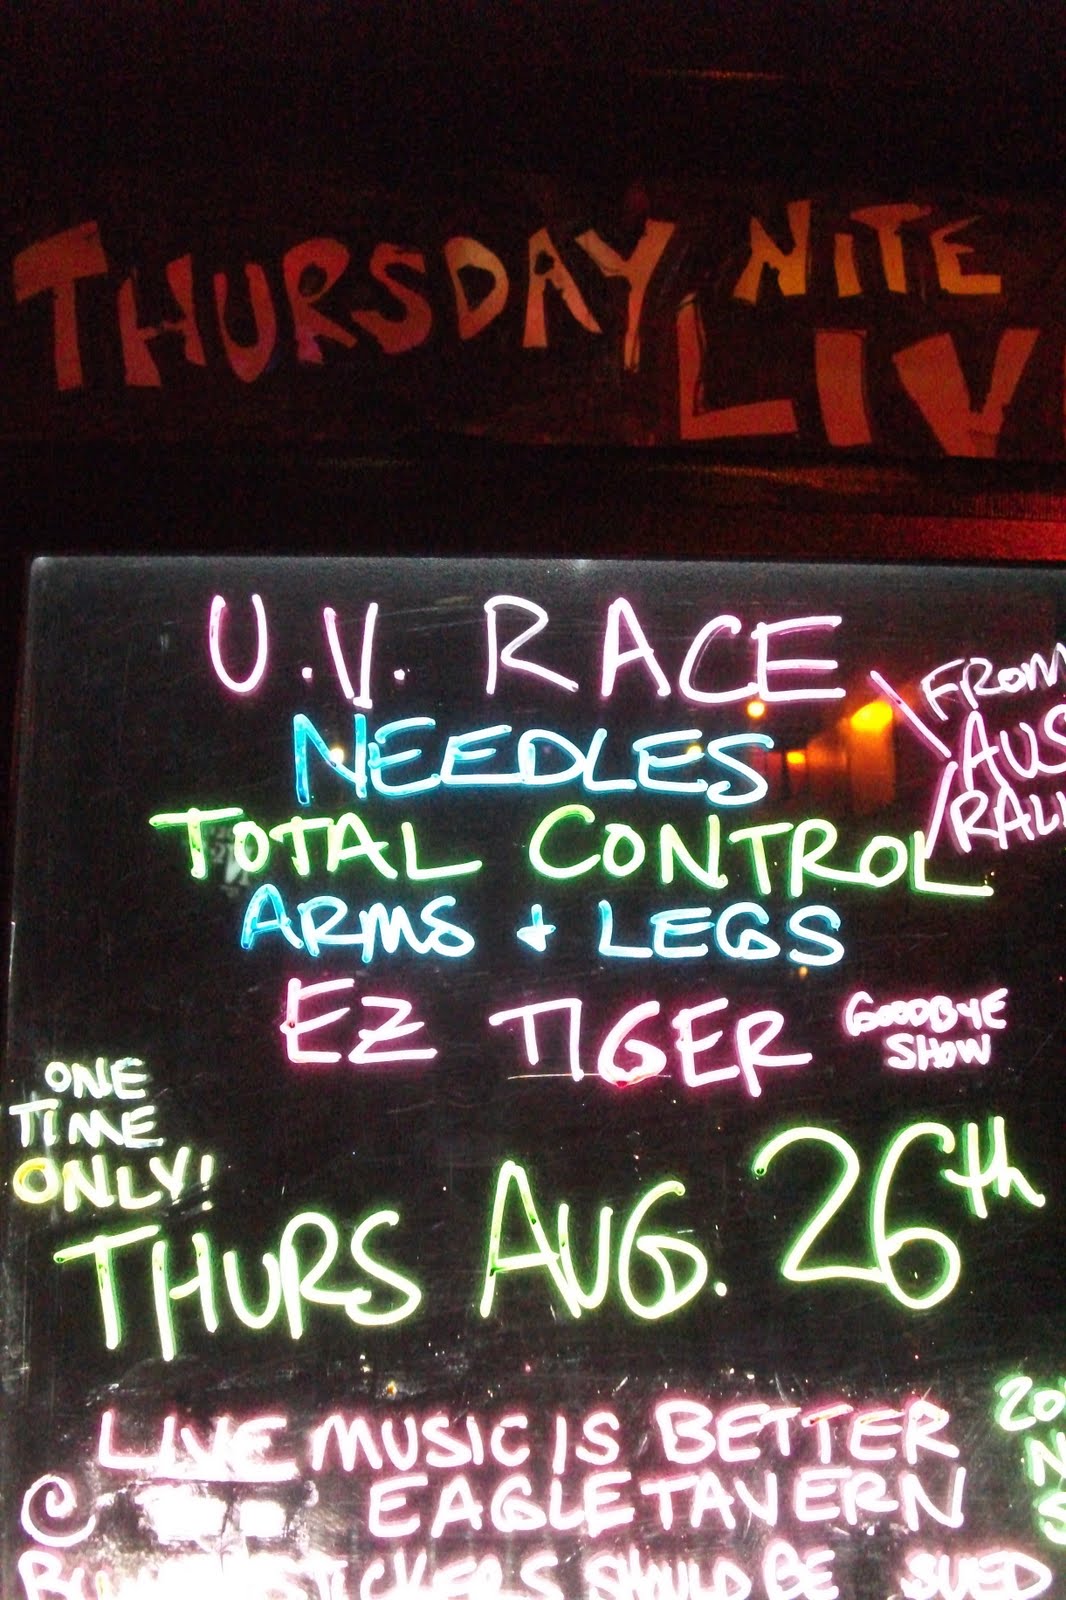 THURSDAY NITE
LIV
U.V. RACE
NEEDLES
TOTAL CONTROL
FROM
AUS
RALI
ARMS + LEGS
EZ TIGER
GOODBYE
SHOW
ONE
TIME
ONLY!
THURS AUG. 26th
LIVE MUSIC IS BETTER
@ EAGLE TAVERN
STICKERS SHOULD BE SUED